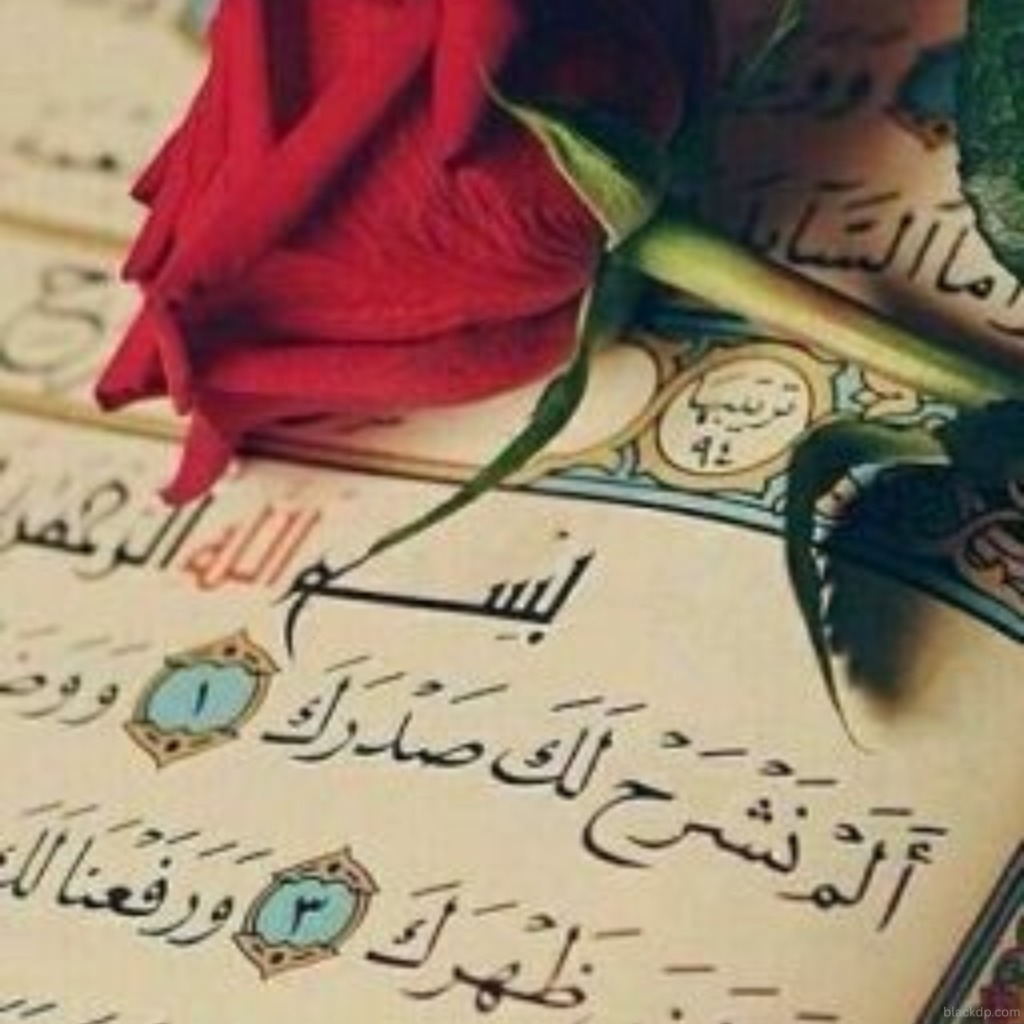 وأما السائل
ترتيبها
٩٤
بِسْمِ اللَّهِ الرَّحْمَٰنِ
أَلَمْ نَشْرَحْ لَكَ صَدْرَكَ ١
ظَهْرَكَ ٣ وَرَفَعْنَا لَكَ
blackdp.com